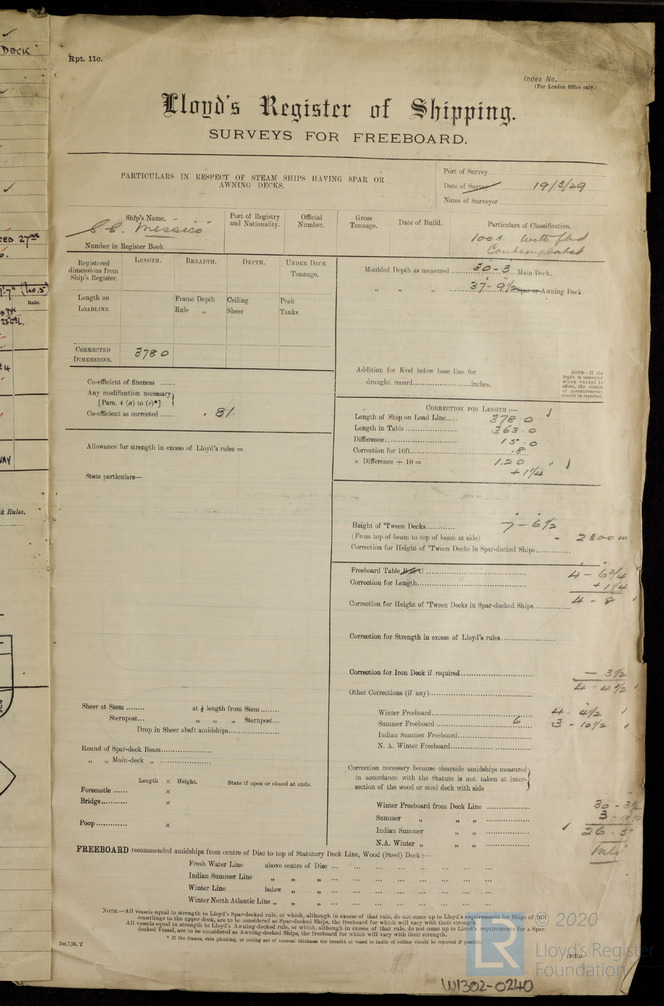 DECK
Rpt. 11c.
Index No.
(For London Office only.)
Lloyd's Register of Shipping.
SURVEYS FOR FREEBOARD.
PARTICULARS IN RESPECT OF STEAM SHIPS HAVING SPAR OR
AWNING DECKS.
Port of Survey
Date of Survey 19/2/29
Name of Surveyor
Ship's Name.
Port of Registry
and Nationality.
Official
Number.
Gross
Tonnage.
Date of Build.
Particulars of Classification.
Messico
100A
Contemplated
Number in Register Book
Registered
dimensions from
Ship's Register.
LENGTH.
BREADTH.
DEPTH.
UNDER DECK
TONNAGE.
Moulded Depth as measured 30-3 Main Deck.
" " " 37-9½ Spar or Awning Deck.
Length on
LOADLINE
Frame Depth
Rule "
Ceiling
Sheer
Peak
Tanks
CORRECTED
DIMENSIONS.
378.0
Addition for Keel below base line for
draught record inches.
NOTE.—If the
depth is measured
when vessel is
afloat, the details
of measurement
should be reported.
Co-efficient of fineness
Any modification necessary
[Para. 4 (a) to (e)*]
Co-efficient as corrected .81
CORRECTION FOR LENGTH:—
Length of Ship on Load Line 378.0
Length in Table 363.0
Difference 15.0
Correction for 10ft. .8
× Difference ÷ 10 = 1.20
+1¼
Allowance for strength in excess of Lloyd's rules =
State particulars—
Height of 'Tween Decks 7-6½
(From top of beam to top of beam at side)
Correction for Height of 'Tween Decks in Spar-decked Ships
Freeboard Table B or C 4-6¾
Correction for Length +1¼
4-8
Correction for Height of 'Tween Decks in Spar-decked Ships
Correction for Strength in excess of Lloyd's rules
Correction for Iron Deck if required -3½
4-4½
Other Corrections (if any)
Sheer at Stem at ⅛ length from Stem
Sternpost " " " Sternpost
Drop in Sheer abaft amidships
Winter Freeboard 4-4½
Summer Freeboard 6 3-10½
Indian Summer Freeboard
N. A. Winter Freeboard
Round of Spar-deck Beam
" " Main-deck "
Length × Height. State if open or closed at ends.
Forecastle ×
Bridge ×
Poop ×
Correction necessary because clearside amidships measured
in accordance with the Statute is not taken at inter-
section of the wood or steel deck with side
Winter Freeboard from Deck Line
Summer " "
Indian Summer " "
N.A. Winter " "
26.5
FREEBOARD recommended amidships from centre of Disc to top of Statutory Deck Line, Wood (Steel) Deck:—
Fresh Water Line above centre of Disc
Indian Summer Line " "
Winter Line below "
Winter North Atlantic Line " "
NOTE.—All vessels equal in strength to Lloyd's Spar-decked rule, or which, although in excess of that rule, do not come up to Lloyd's requirements for Ships of full
scantlings to the upper deck, are to be considered as Spar-decked Ships, the freeboard for which will vary with their strength.
All vessels equal in strength to Lloyd's Awning-decked rule, or which, although in excess of that rule, do not come up to Lloyd's requirements for a Spar-
decked Vessel, are to be considered as Awning-decked Ships, the freeboard for which will vary with their strength.
* If the frames, skin planking, or ceiling are of unusual thickness the breadth of vessel to inside of ceiling should be reported if possible.
© 2020
Lloyd's Register
Foundation
W1302-0240